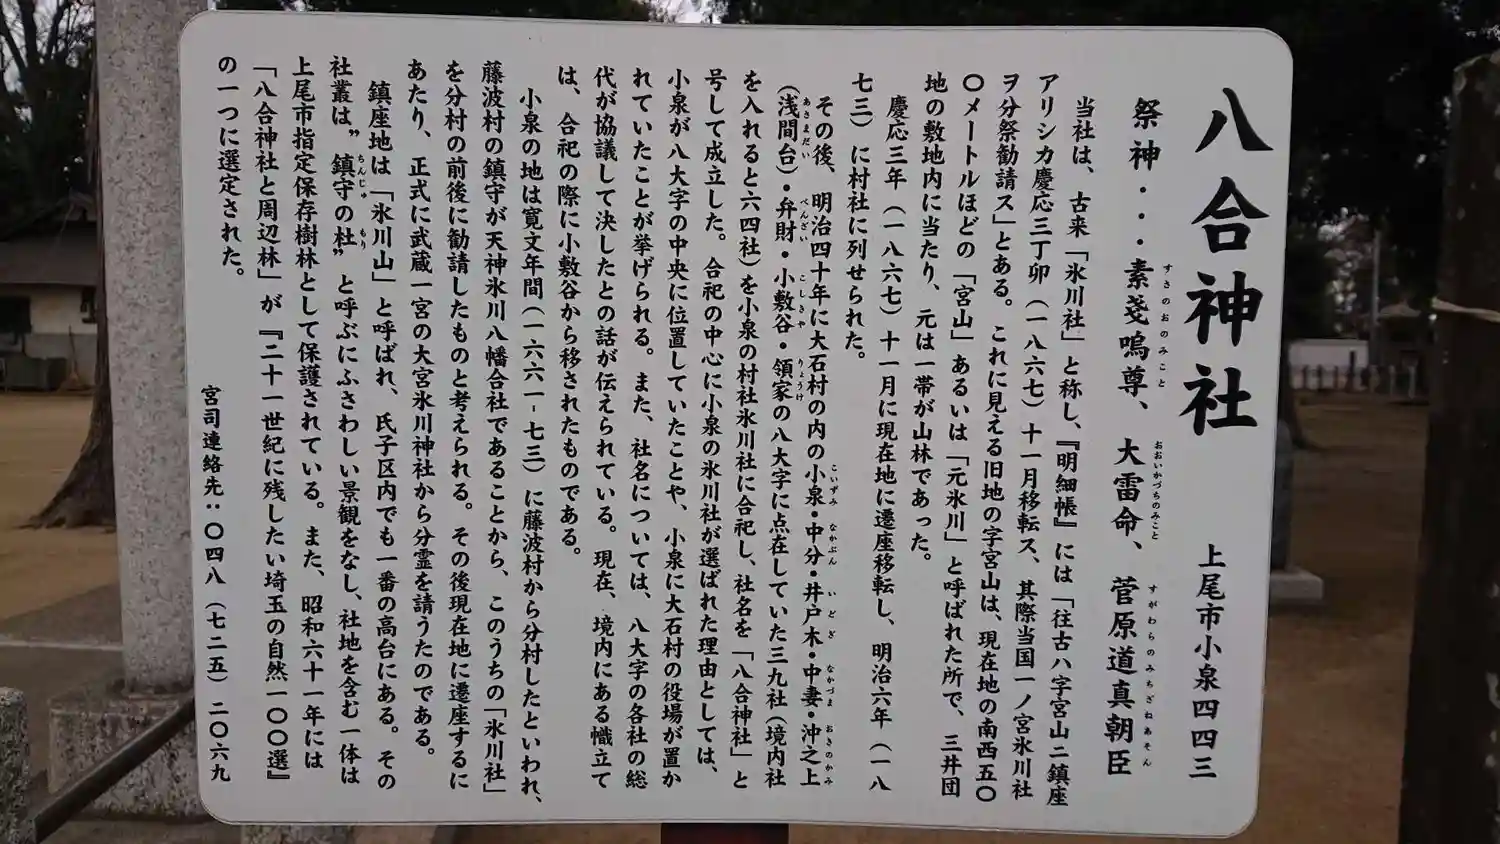 八合神社
上尾市小泉四四三
祭神・・・素戔嗚尊、大雷命、菅原道真朝臣
すさのおのみこと おおいかづちのみこと すがわらのみちざねあそん
当社は、古来「氷川社」と称し、『明細帳』には「往古ハ字宮山ニ鎮座
アリシカ慶応三丁卯(一八六七)十一月移転ス、其際当国一ノ宮氷川社
ヲ分祭勧請ス」とある。これに見える旧地の字宮山は、現在地の南西五〇
〇メートルほどの「宮山」あるいは「元氷川」と呼ばれた所で、三井団
地の敷地内に当たり、元は一帯が山林であった。
慶応三年(一八六七)十一月に現在地に遷座移転し、明治六年(一八
七三)に村社に列せられた。
その後、明治四十年に大石村の内の小泉・中分・井戸木・中妻・沖之上
こいずみ なかぶん いどぎ なかづま おきのかみ
(浅間台)・弁財・小敷谷・領家の八大字に点在していた三九社(境内社
あさまだい べんざい こしきや りょうけ
を入れると六四社)を小泉の村社氷川社に合祀し、社名を「八合神社」と
号して成立した。合祀の中心に小泉の氷川社が選ばれた理由としては、
小泉が八大字の中央に位置していたことや、小泉に大石村の役場が置か
れていたことが挙げられる。また、社名については、八大字の各社の総
代が協議して決したとの話が伝えられている。現在、境内にある幟立て
は、合祀の際に小敷谷から移されたものである。
小泉の地は寛文年間(一六六一-七三)に藤波村から分村したといわれ、
藤波村の鎮守が天神氷川八幡合社であることから、このうちの「氷川社」
を分村の前後に勧請したものと考えられる。その後現在地に遷座するに
あたり、正式に武蔵一宮の大宮氷川神社から分霊を請うたのである。
鎮座地は「氷川山」と呼ばれ、氏子区内でも一番の高台にある。その
社叢は、"鎮守の杜"と呼ぶにふさわしい景観をなし、社地を含む一体は
ちんじゅ もり
上尾市指定保存樹林として保護されている。また、昭和六十一年には
「八合神社と周辺林」が『二十一世紀に残したい埼玉の自然一〇〇選』
の一つに選定された。
宮司連絡先:〇四八(七二五)二〇六九